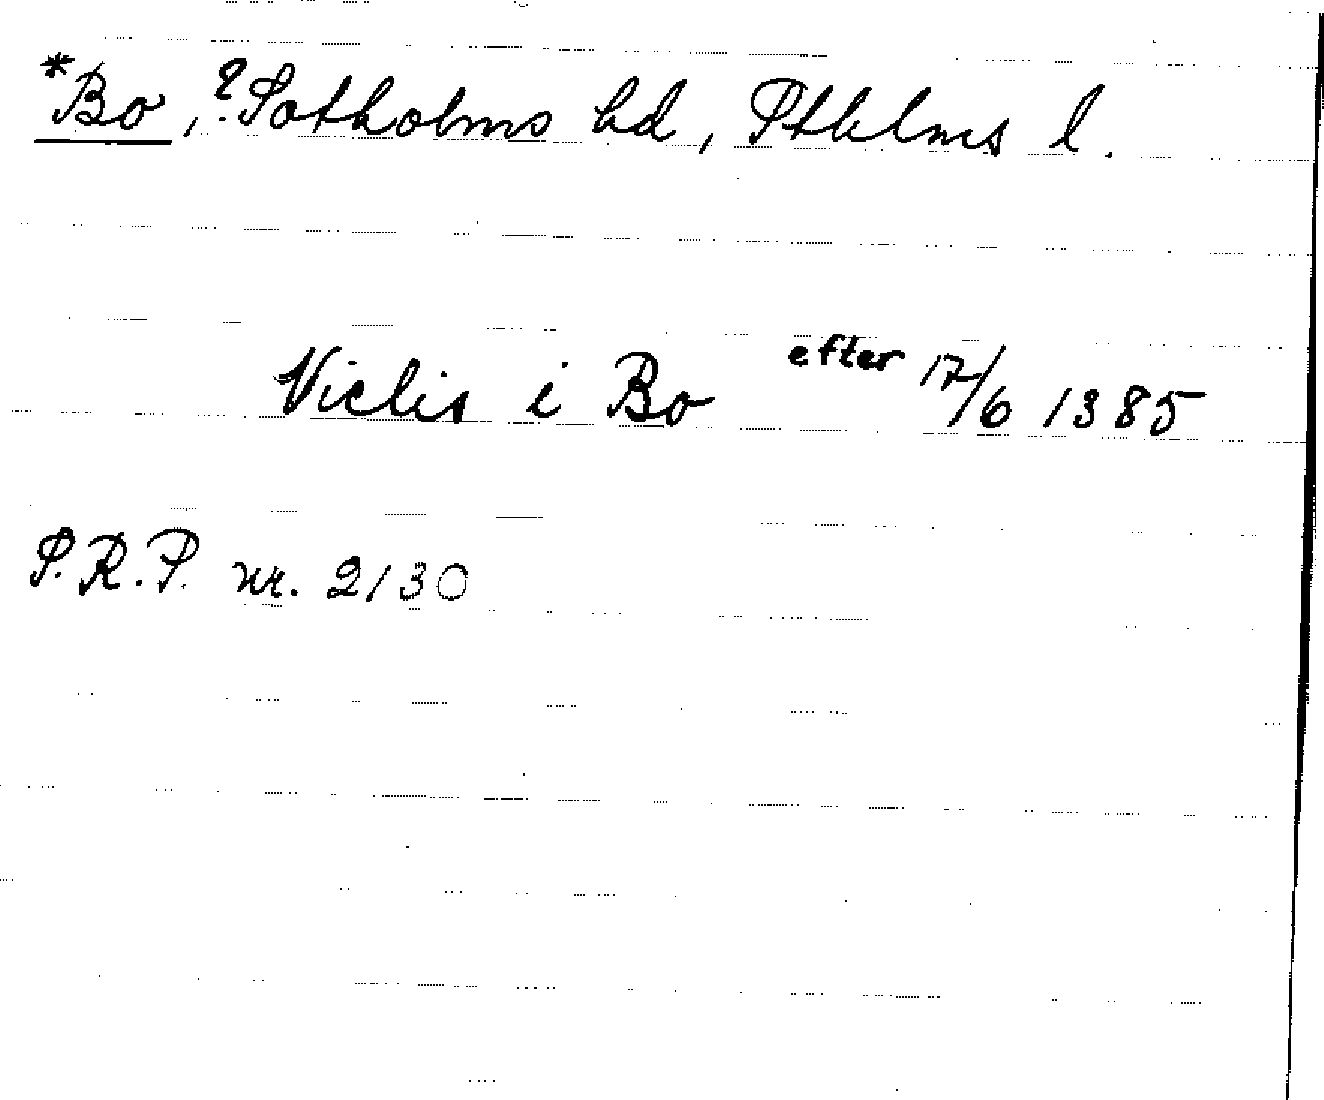 *Bo, ?Sotholms hd, Sthlms l.
Viclis i Bo efter 17/6 1385
S.R.P. nr. 2130